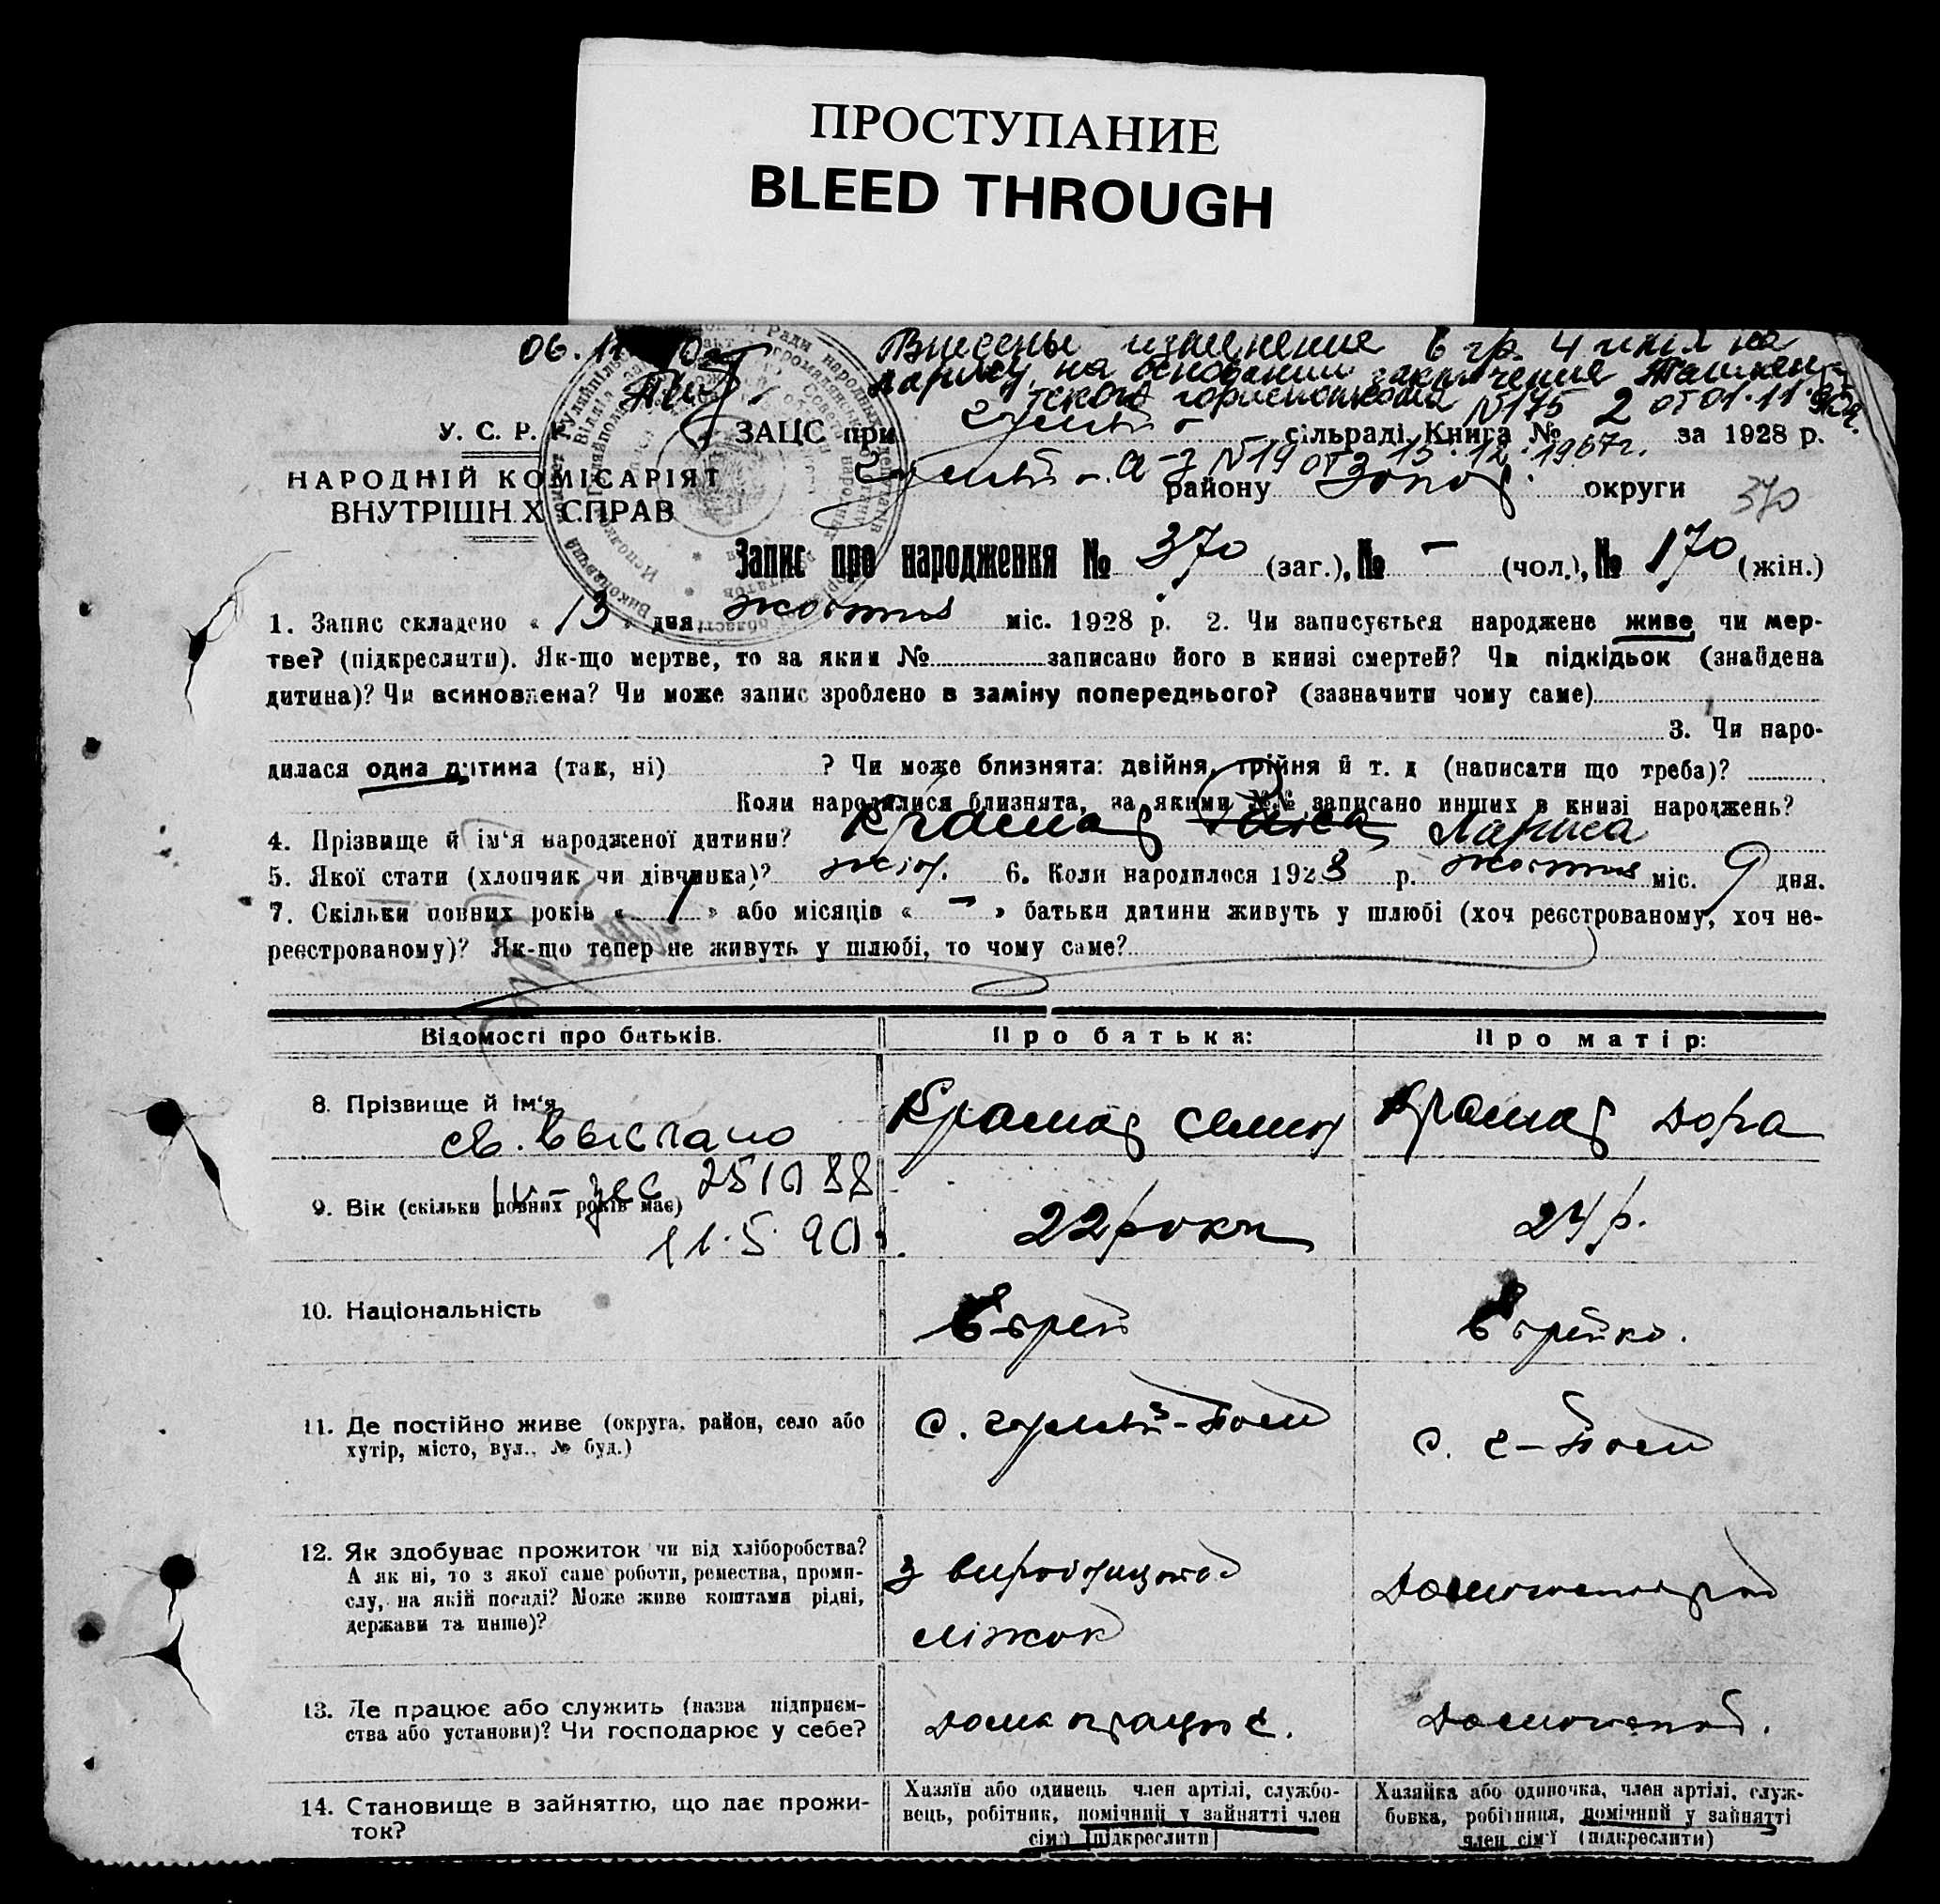 ПРОСТУПАНИЕ
BLEED THROUGH
06.11
Внесены изменения в гр. 4 имя на
Ларису, на основании заключения Ташкен-
тского горисполкома №175 от 01.11.90г.
У. С. Р. Р.
ЗАЦС при сільраді Книга № 2 за 1928 р.
НАРОДНІЙ КОМІСАРІЯТ
а-з №19 от 15.12.1967г.
ВНУТРІШНІХ СПРАВ
району Запор. округи
370
Запис про народження № 370 (заг.), № – (чол.), № 170 (жін.)
1. Запис складено « 13 » дня жовтня міс. 1928 р. 2. Чи записується народжене живе чи мер-
тве? (підкреслити). Як-що мертве, то за яким № записано його в книзі смертей? Чи підкідьок (знайдена
дитина)? Чи всиновлена? Чи може запис зроблено в заміну попереднього? (зазначити чому саме)
3. Чи наро-
дилася одна дитина (так, ні) ? Чи може близнята: двійня, трійня й т. д (написати що треба)?
Коли народилися близнята, за якими №№ записано инших в книзі народжень?
4. Прізвище й ім'я народженої дитини? Крамар Лариса
5. Якої стати (хлопчик чи дівчинка)? жін. 6. Коли народилося 1928 р. жовтня міс. 9 дня.
7. Скільки повних років « 1 » або місяців « – » батьки дитини живуть у шлюбі (хоч реєстрованому, хоч не-
реєстрованому)? Як-що тепер не живуть у шлюбі, то чому саме?
Відомості про батьків. Про батька: Про матір:
8. Прізвище й ім'я Крамар Семен Крамар Дора
св. выслано
25 10 88
9. Вік (скільки повних років має) 22 роки 24 р.
11.5.90
10. Національність Еврей Еврейка.
11. Де постійно живе (округа, район, село або
хутір, місто, вул., № буд.)
с. Гуляй-Поле с. Г-Поле
12. Як здобуває прожиток чи від хліборобства?
А як ні, то з якої саме роботи, ремества, проми-
слу, на якій посаді? Може живе коштами рідні,
держави та инше)?
з виробництва
ліжок
13. Де працює або служить (назва підприєм-
ства або установи)? Чи господарює у себе?
дома працює. Домогоспод.
14. Становище в зайняттю, що дає прожи-
ток?
Хазяїн або одинець член артілі, службо-
вець, робітник, помічний у зайнятті член
сім'ї (підкреслити)
Хазяйка або одиночка, член артілі, служ-
бовка, робітниця, помічний у зайнятті
член сім'ї (підкреслити)